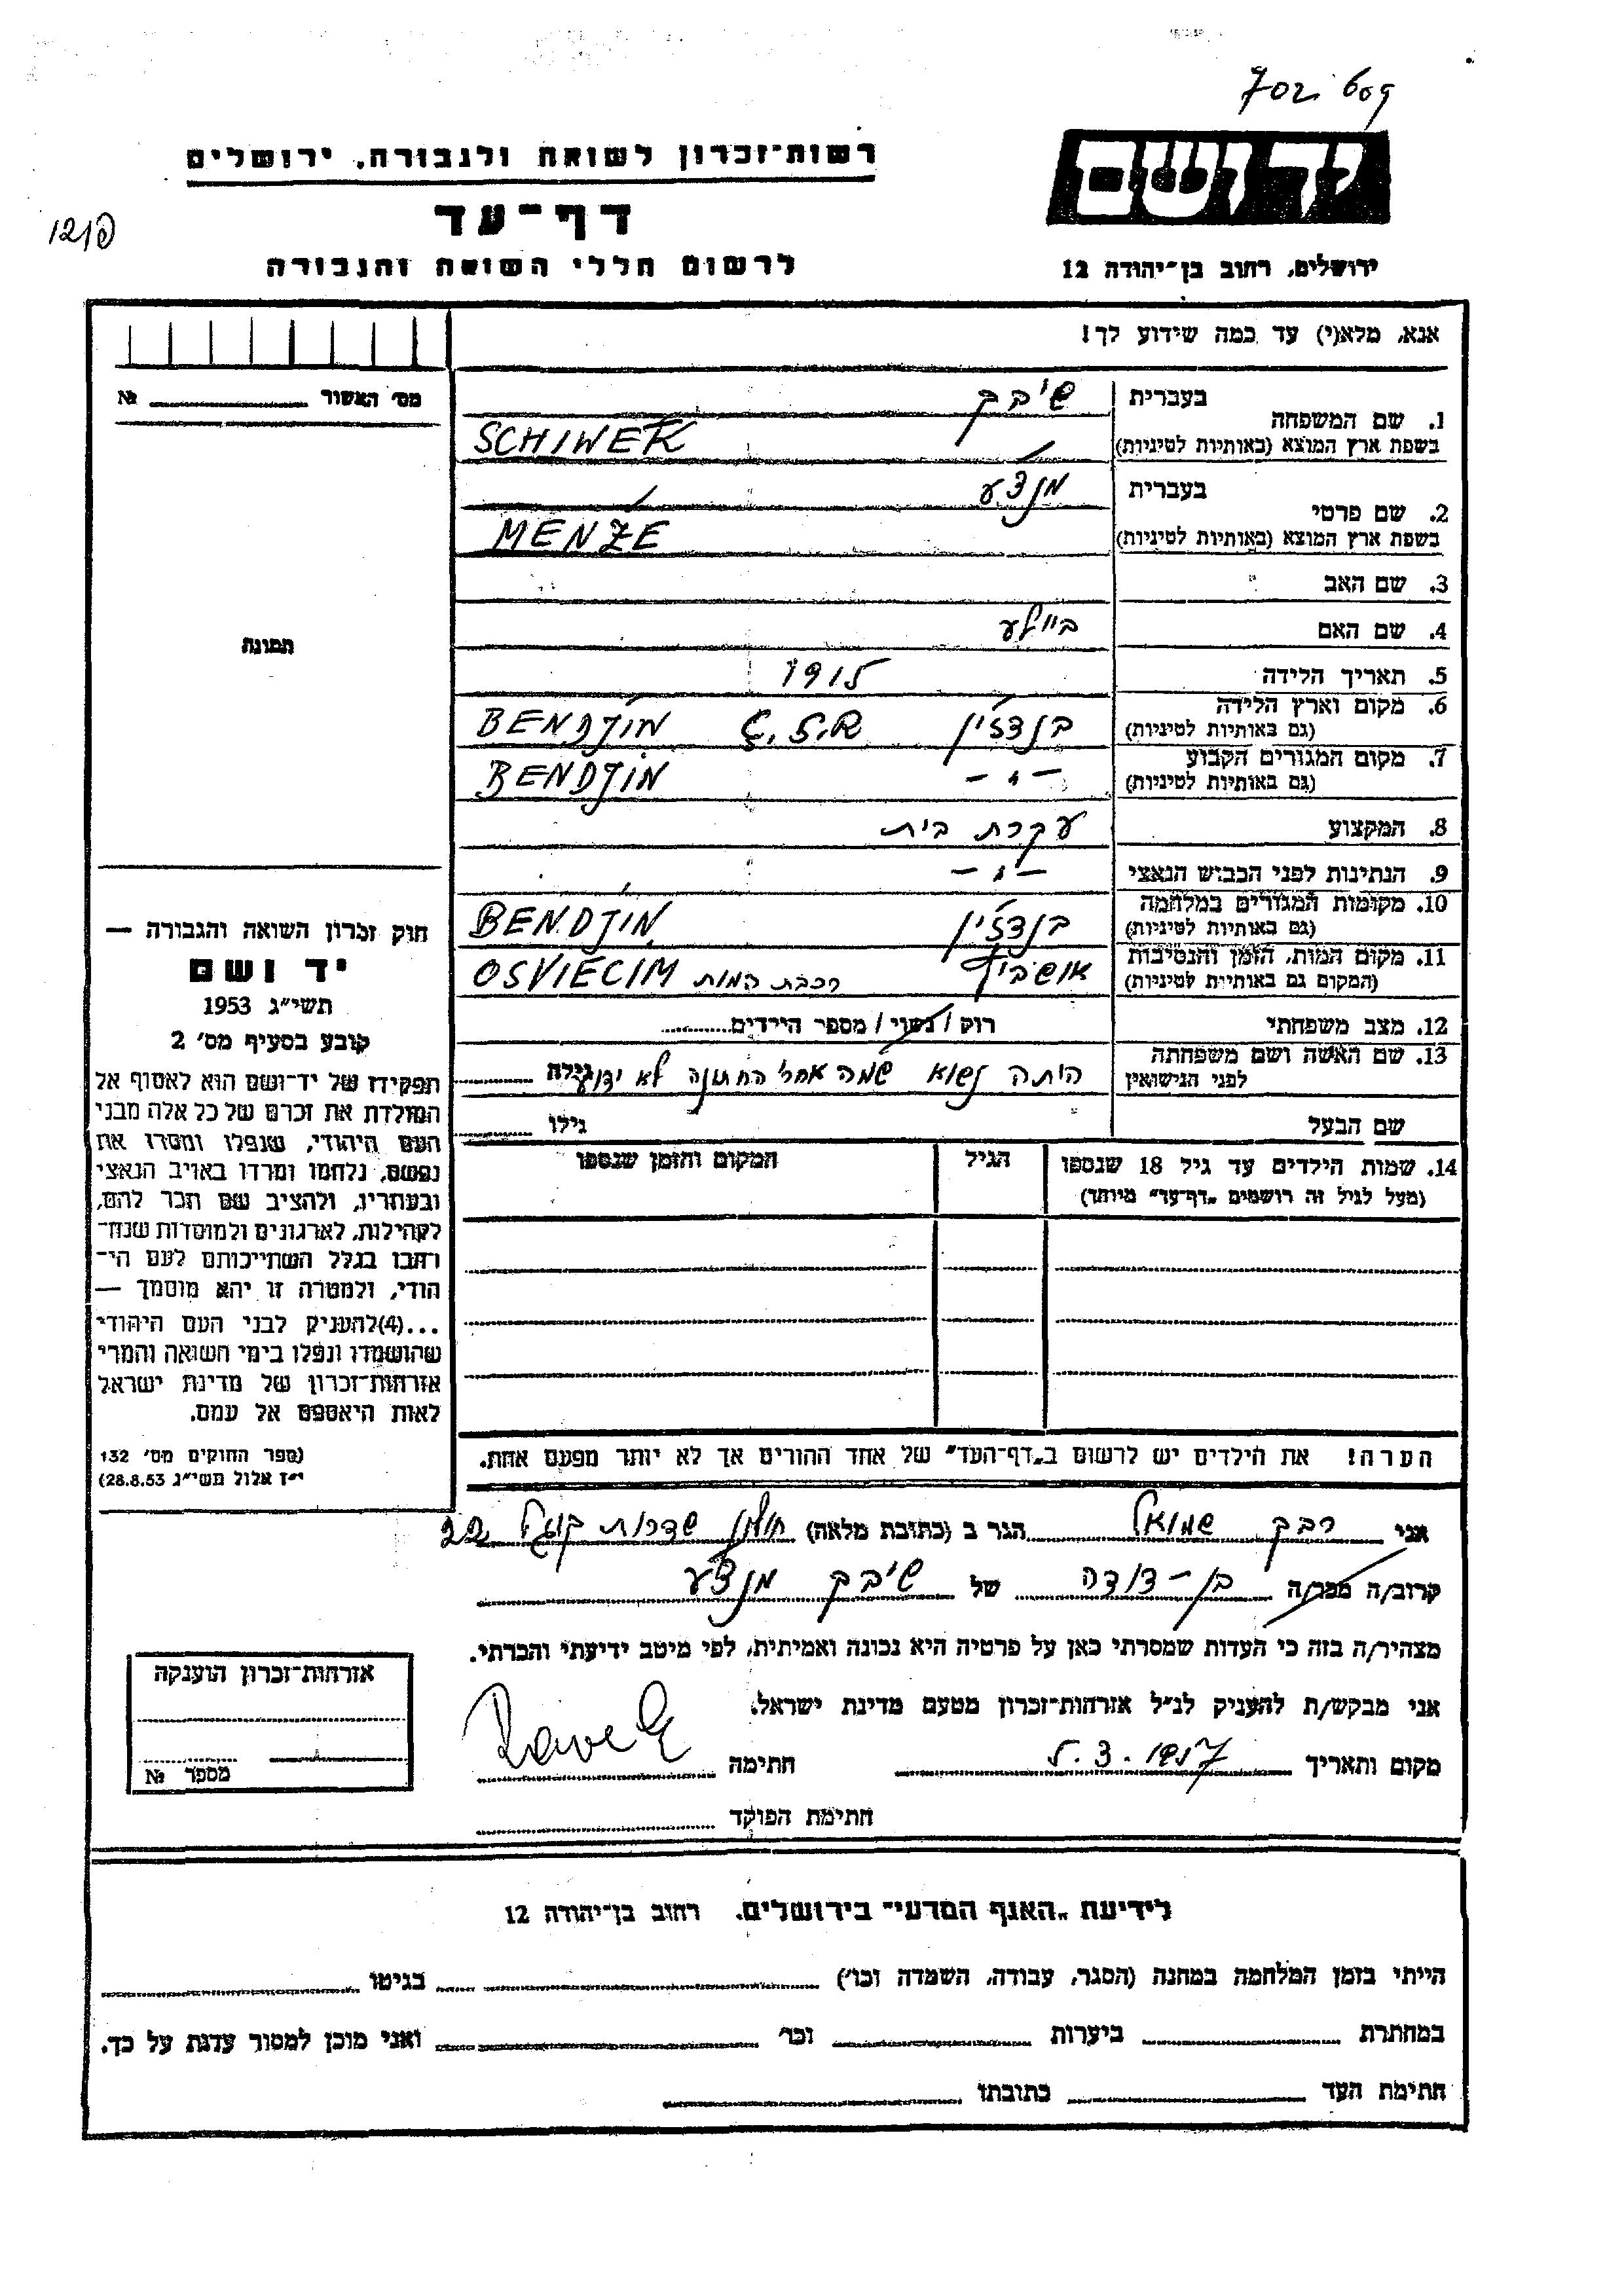 יד ושם
רשות-זכרון לשואה ולגבורה, ירושלים
דף-עד
לרשום חללי השואה והגבורה
ירושלים, רחוב בן-יהודה 12
אנא, מלא(י) עד כמה שידוע לך!
מס' האשור № 
1. שם המשפחה בעברית שיבק
בשפת ארץ המוצא (באותיות לטיניות) SCHIWEK
2. שם פרטי בעברית מנצע
בשפת ארץ המוצא (באותיות לטיניות) MENZE
3. שם האב
4. שם האם ביילע
5. תאריך הלידה 1915
6. מקום וארץ הלידה (גם באותיות לטיניות) בנדזין BENDJIN
7. מקום המגורים הקבוע (גם באותיות לטיניות) -"- BENDJIN
8. המקצוע עקרת בית
9. הנתינות לפני הכבוש הנאצי -"-
10. מקומות המגורים במלחמה (גם באותיות לטיניות) בנדזין BENDJIN
11. מקום המות, הזמן והנסיבות (המקום גם באותיות לטיניות) אושביץ רכבת המות OSVIECIM
12. מצב משפחתי רוק / נשוי / מספר הילדים
13. שם האשה ושם משפחתה לפני הנישואין היתה נשוא שמה אחרי החתונה לא ידוע גילה
שם הבעל גילו
14. שמות הילדים עד גיל 18 שנספו הגיל המקום והזמן שנספו
(מעל לגיל זה רושמים "דף-עד" מיוחד)
הערה! את הילדים יש לרשום ב"דף-העד" של אחד ההורים אך לא יותר מפעם אחת.
תמונה
חוק זכרון השואה והגבורה —
יד ושם
תשי"ג 1953
קובע בסעיף מס' 2
תפקידו של יד-ושם הוא לאסוף אל
המולדת את זכרם של כל אלה מבני
העם היהודי, שנפלו ומסרו את
נפשם, נלחמו ומרדו באויב הנאצי
ובעוזריו, ולהציב שם וזכר להם,
לקהילות, לארגונים ולמוסדות שנח-
רבו בגלל השתייכותם לעם הי-
הודי, ולמטרה זו יהא מוסמך —
...(4)להעניק לבני העם היהודי
שהושמדו ונפלו בימי השואה והמרי
אזרחות-זכרון של מדינת ישראל
לאות היאספם אל עמם.
(ספר החוקים מס' 132
י"ז אלול תשי"ג 28.8.53)
אני רבק שמואל הגר ב (כתובת מלאה) חולון שדרות קוגל 22
קרוב/ה מכר/ה בן-דודה של שיבק מנצע
מצהיר/ה בזה כי העדות שמסרתי כאן על פרטיה היא נכונה ואמיתית, לפי מיטב ידיעתי והכרתי.
אני מבקש/ת להעניק לנ"ל אזרחות-זכרון מטעם מדינת ישראל.
מקום ותאריך 5.3.1957 חתימה
חתימת הפוקד
אזרחות-זכרון הוענקה
מספר №
לידיעת "האגף המדעי" בירושלים. רחוב בן-יהודה 12
הייתי בזמן המלחמה במחנה (הסגר, עבודה, השמדה וכו') בגיטו
במחתרת ביערות וכו' ואני מוכן למסור עדות על כך.
חתימת העד כתובתו